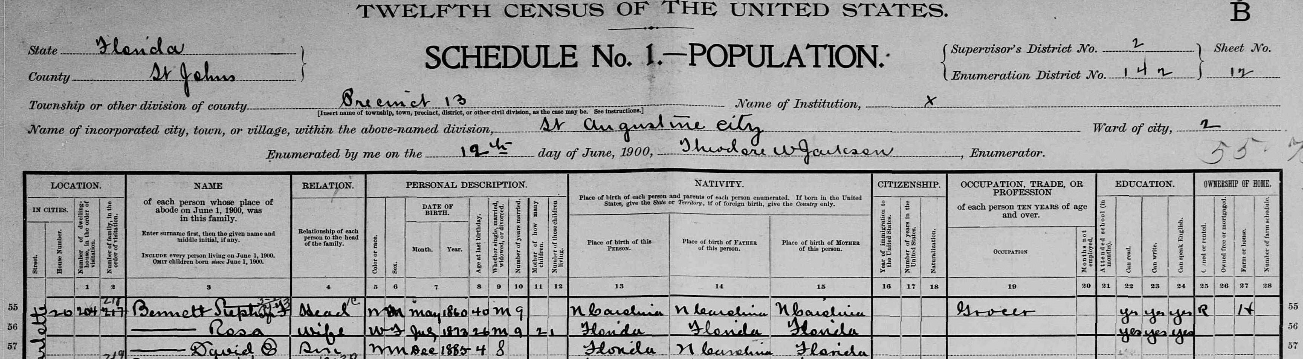 TWELFTH CENSUS OF THE UNITED STATES.
B
SCHEDULE No. 1.—POPULATION.
State Florida
County St Johns
Supervisor's District No. 2
Enumeration District No. 142
Sheet No.
12
Township or other division of county Precinct 13
Name of Institution, X
[Insert name of township, town, precinct, district, or other civil division, as the case may be. See instructions.]
Name of incorporated city, town, or village, within the above-named division, St Augustine city
Ward of city, 2
Enumerated by me on the 12th day of June, 1900, Theodore W Jackson, Enumerator.
55
LOCATION. NAME RELATION. PERSONAL DESCRIPTION. NATIVITY. CITIZENSHIP. OCCUPATION, TRADE, OR PROFESSION EDUCATION. OWNERSHIP OF HOME.
IN CITIES.
Street.
House Number.
Number of dwelling-house, in the order of visitation.
Number of family, in the order of visitation.
of each person whose place of abode on June 1, 1900, was in this family.
Enter surname first, then the given name and middle initial, if any.
INCLUDE every person living on June 1, 1900.
OMIT children born since June 1, 1900.
Relationship of each person to the head of the family.
Color or race.
Sex.
DATE OF BIRTH.
Month. Year.
Age at last birthday.
Whether single, married, widowed, or divorced.
Number of years married.
Mother of how many children.
Number of these children living.
Place of birth of each person and parents of each person enumerated. If born in the United States, give the State or Territory; if of foreign birth, give the Country only.
Place of birth of this PERSON.
Place of birth of FATHER of this person.
Place of birth of MOTHER of this person.
Year of immigration to the United States.
Number of years in the United States.
Naturalization.
of each person TEN YEARS of age and over.
OCCUPATION
Months not employed.
Attended school (in months).
Can read.
Can write.
Can speak English.
Owned or rented.
Owned free or mortgaged.
Farm or house.
Number of farm schedule.
1 2 3 4 5 6 7 8 9 10 11 12 13 14 15 16 17 18 19 20 21 22 23 24 25 26 27 28
55 20 204 217 Bennett Head W M May 1860 40 M 9 N Carolina N Carolina N Carolina Grocer yes yes yes R H 55
56 Rosa Wife W F July 1873 26 M 9 2 1 Florida Florida Florida yes yes yes 56
57 David Son W M Dec 4 S Florida N Carolina Florida 57